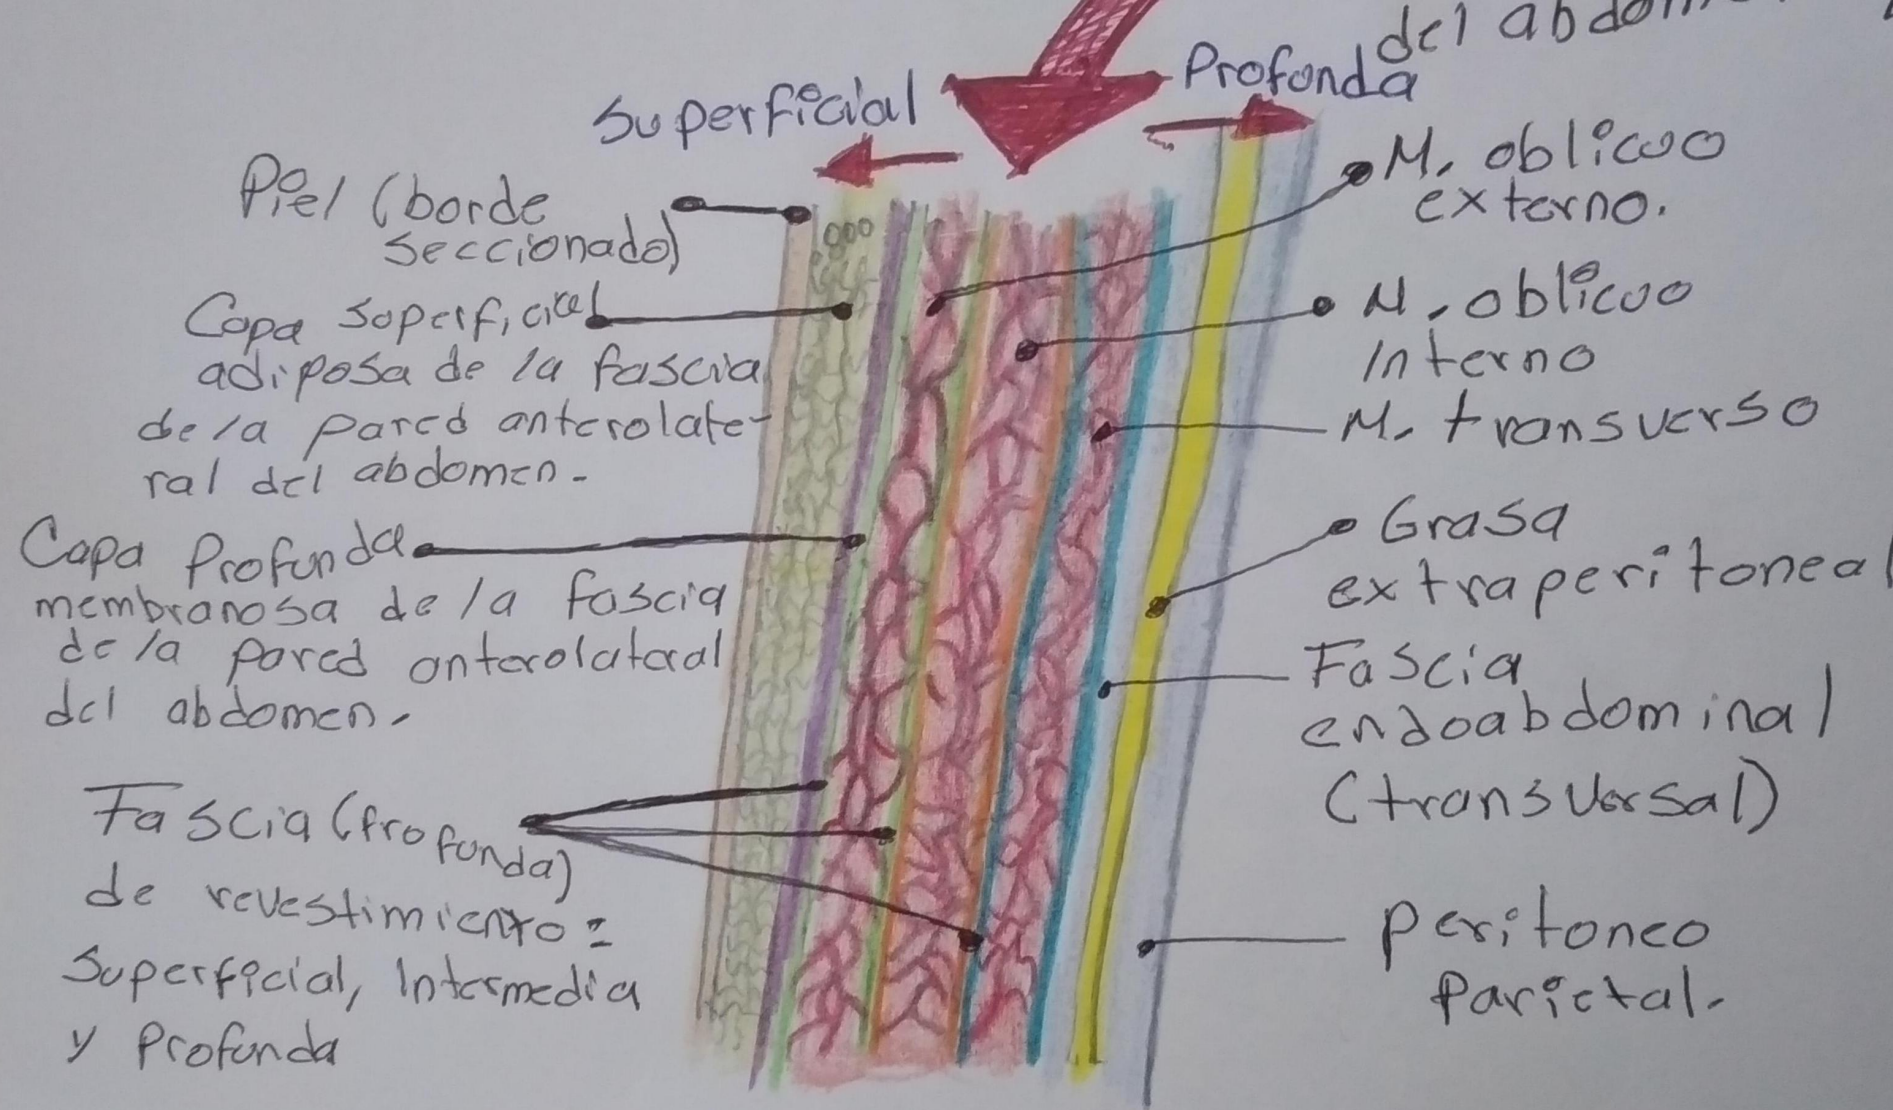 del abdom
Superficial
Profunda
Piel (borde
seccionado)
Capa superficial
adiposa de la fascia
de la pared anterolate-
ral del abdomen.
Capa Profunda
membranosa de la fascia
de la pared anterolateral
del abdomen.
Fascia (profunda)
de revestimiento:
Superficial, Intermedia
y Profunda
M. oblicuo
externo.
M. oblicuo
Interno
M. transverso
Grasa
extraperitoneal
Fascia
endoabdominal
(transversal)
Peritoneo
Parietal.